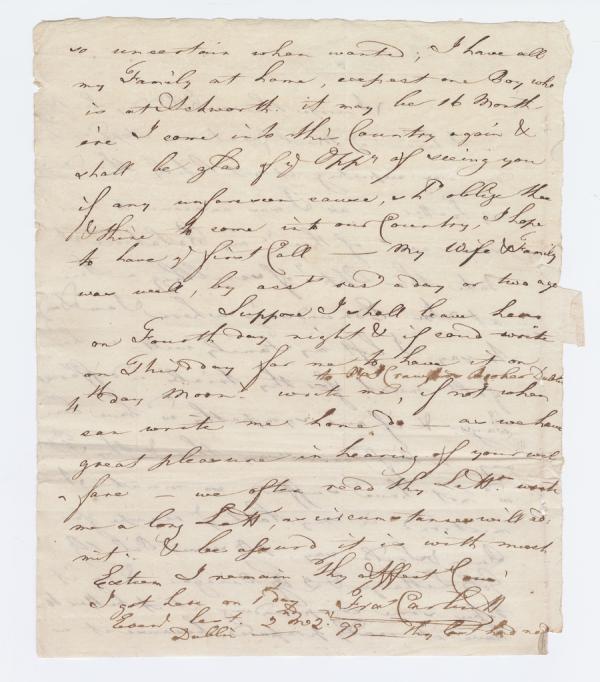 so uncertain when wanted; I have all
my Family at home, except one Boy who
is at Ackworth. it may be 16 Month
ere I come into this Country again &
shall be glad of ye Oppy of seeing you
if any unforeseen cause, shd oblige thee
& thine to come into our Country, I hope
to have ye first Call — My Wife & Family
was well, by acct recd a day or two ago
Suppose I shall leave here
on Fourth day night & if coud write
on Third day for me to have it on
to
Dublin
4th day Morn: write me, if not when
can write me home do — as we have
great pleasure in hearing of your wel
fare — we often read thy Letts. write
me a long Lett as circumstances will ad:
mit. & be assurd it is with much
Esteem I remain Thy affect Cous
I got here on 7 day Fras
Even last. 2d Mo 2d 99 — thy last had not
Dublin